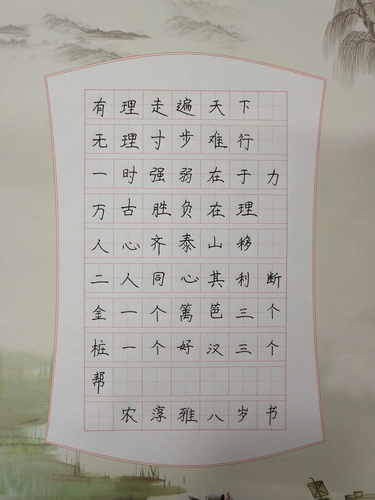 有理走遍天下
无理寸步难行
一时强弱在于力
万古胜负在理
人心齐泰山移
二人同心其利断
金一个篱笆三个
桩一个好汉三个
帮
农淳雅八岁书